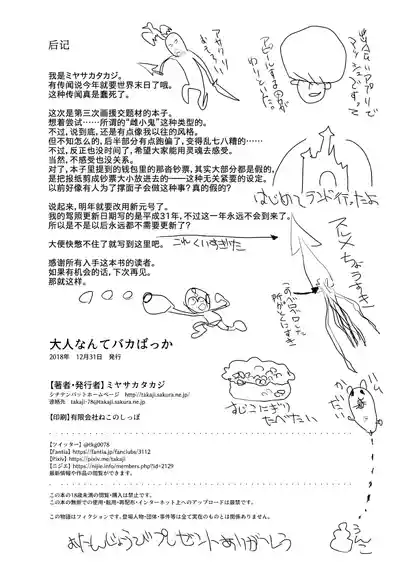 后记
我是ミヤサカタカジ。
有传闻说今年就要世界末日了哦。
这种传闻真是蠢死了。
这次是第三次画援交题材的本子。
想着尝试……所谓的“雌小鬼”这种类型的。
不过，说到底，还是有点像我以往的风格。
但不知怎么的，后半部分有点跑偏了，变得乱七八糟的……
不过，反正也没时间了，希望大家能用灵魂去感受。
当然，不感受也没关系。
对了，本子里提到的钱包里的那沓钞票，其实大部分都是假的，
是把报纸剪成钞票大小放进去的——这种无关紧要的设定。
以前好像有人为了撑面子会做这种事？真的假的？
说起来，明年就要改用新元号了。
我的驾照更新日期写的是平成31年，不过这一年永远不会到来了。
所以是不是以后永远都不需要更新了？
大便快憋不住了就写到这里吧。
感谢所有入手这本书的读者。
如果有机会的话，下次再见。
那就这样。
はじめてランド行ったよ
これくいすぎた
むこにぎり
たべたい
うんこ
大人なんてバカばっか
2018年　12月31日　発行
【著者・発行者】ミヤサカタカジ
シチテンバットホームページ　http://takaji.sakura.ne.jp
連絡先　takaji-78@takaji.sakura.ne.jp
【印刷】有限会社ねこのしっぽ
【ツイッター】@tkg0078
【Fantia】https://fantia.jp/fanclubs/3112
【Pixiv】https://pixiv.me/takaji
【ニジエ】https://nijie.info/members.php?id=2129
最新情報や作品の閲覧ができます。
この本の18歳未満の閲覧・購入は禁止です。
この本の無断での使用・転用・再配布・インターネット上へのアップロードは厳禁です。
この物語はフィクションです。登場人物・団体・事件等は全て実在のものとは関係ありません。
おたんじょうびプレゼントありがとう